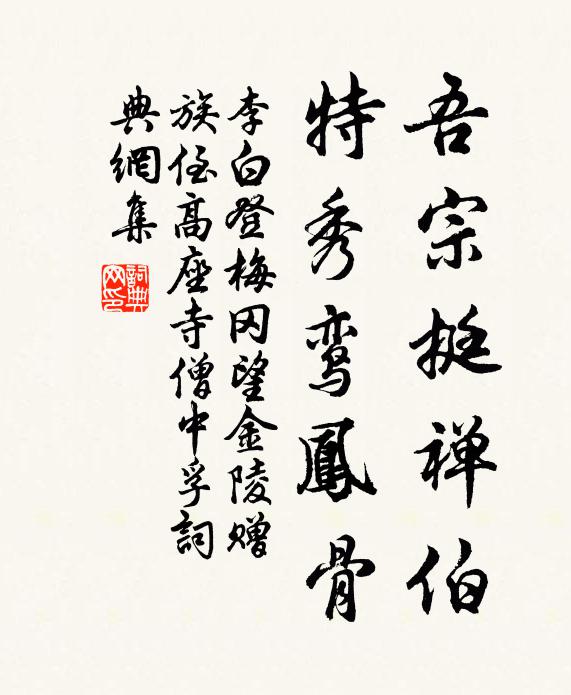 吾宗挺禅伯
特秀鸾鳳骨
李白登梅冈望金陵赠
族侄高座寺僧中孚詞
典網集
詞典网印